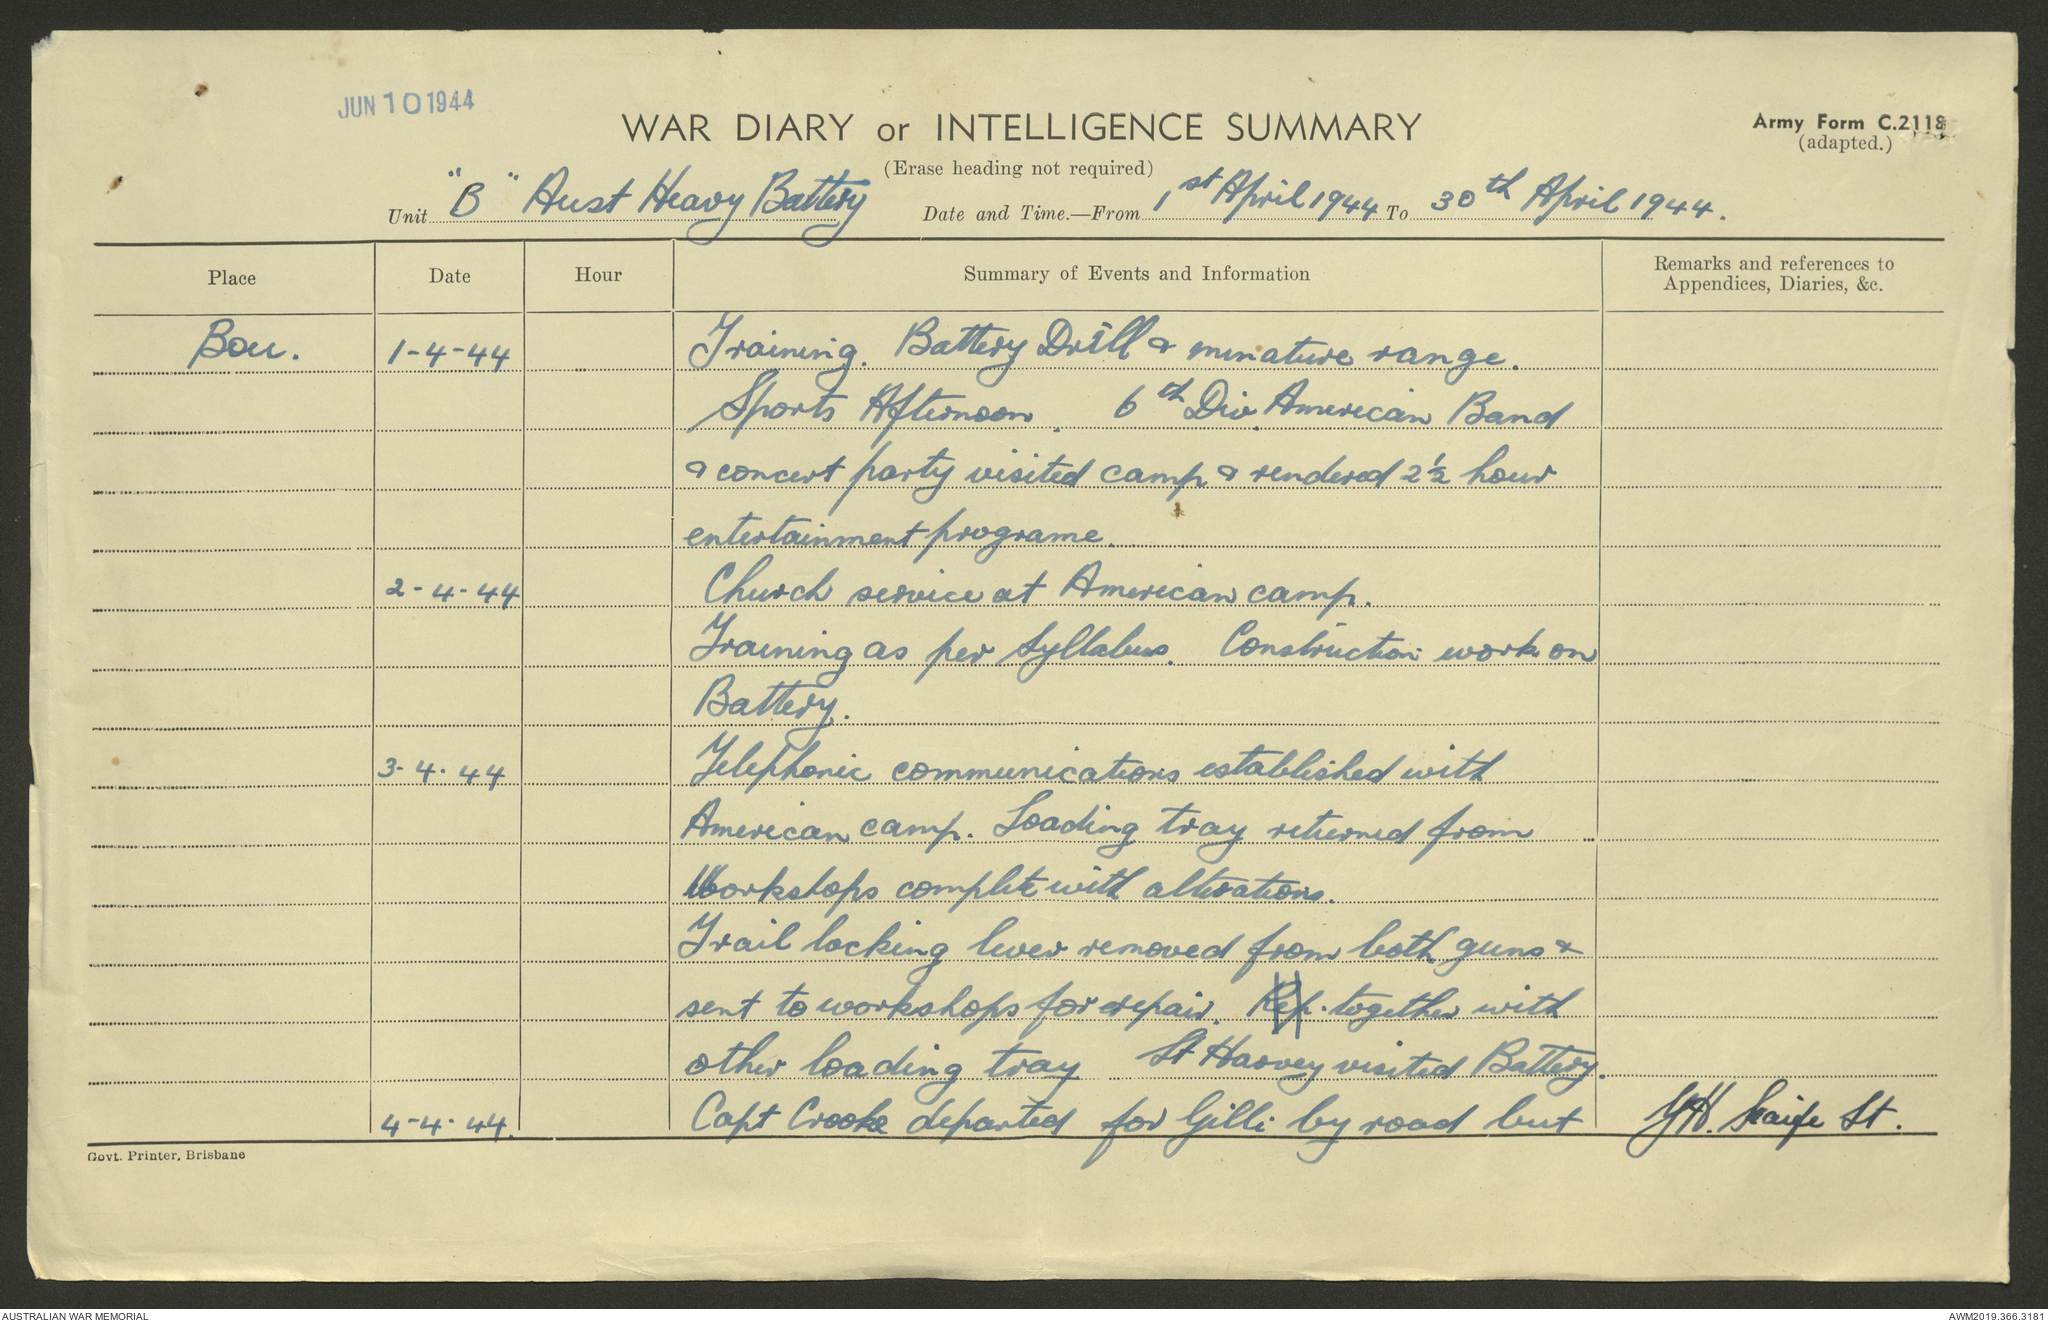 JUN 10 1944
WAR DIARY or INTELLIGENCE SUMMARY
Army Form C.2118
(adapted.)
(Erase heading not required)
Unit "B" Aust Heavy Battery Date and Time.—From 1st April 1944 To 30th April 1944.
Place Date Hour Summary of Events and Information Remarks and references to
Appendices, Diaries, &c.
Bou. 1-4-44 Training. Battery Drill & minature range.
Sports Afternoon. 6th Div. American Band
& concert party visited camp & rendered 2½ hour
entertainment programe.
2-4-44 Church service at American camp.
Training as per Syllabus. Construction work on
Battery.
3-4-44 Telephonic communications established with
American camp. Loading tray returned from
Workshops complete with alterations.
Trail locking lever removed from both guns &
sent to workshops for repair. Rep. together with
other loading tray Lt Harvey visited Battery.
4-4-44. Capt Crooke departed for Gilli by road but Scaife Lt.
Govt. Printer, Brisbane
AUSTRALIAN WAR MEMORIAL AWM2019.366.3181